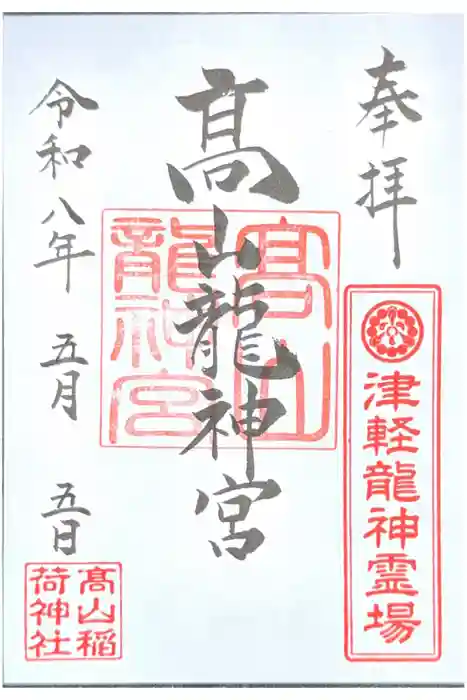 奉拝
津軽龍神霊場
髙山龍神宮
髙山
龍神宮
令和八年 五月 五日
髙山稲
荷神社